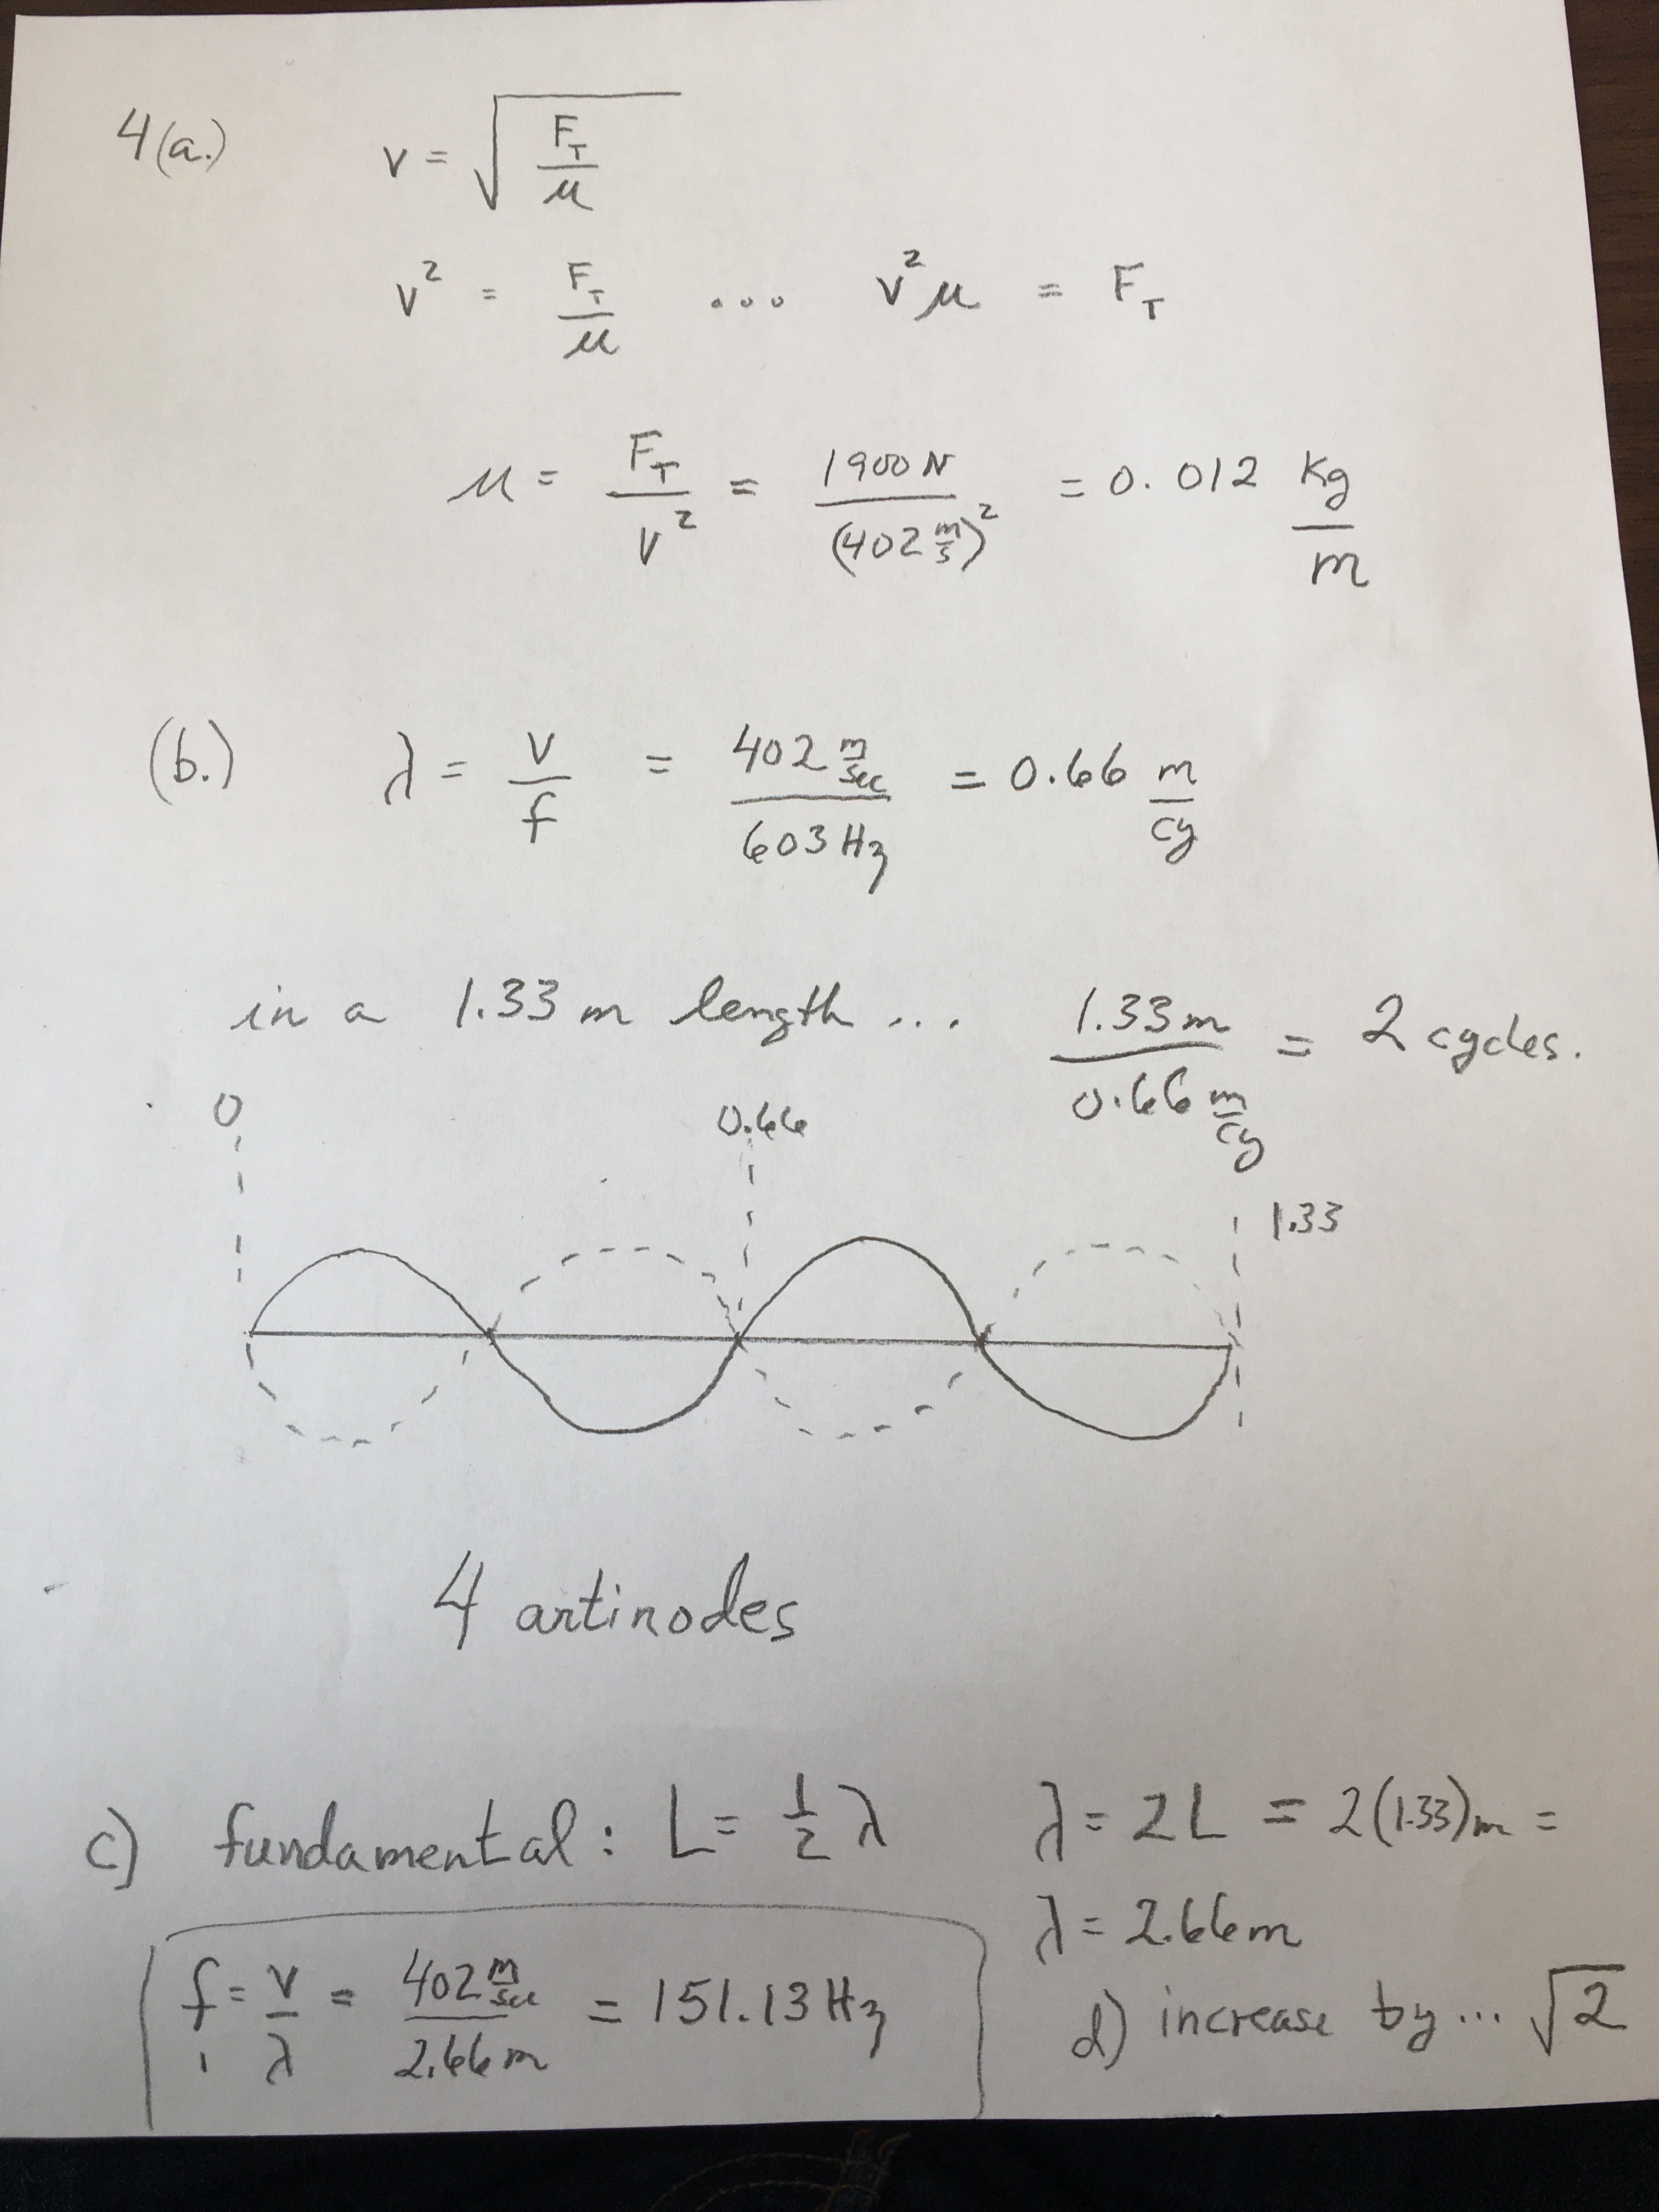 4(a.) v = √(F_T/μ)
v² = F_T/μ ... v²μ = F_T
μ = F_T/v² = 1900 N/(402 m/s)² = 0.012 Kg/m
(b.) λ = v/f = 402 m/sec/603 Hz = 0.66 m/cy
in a 1.33 m length ... 1.33 m/0.66 m/cy = 2 cycles.
0 0.66 1.33
4 antinodes
c) fundamental: L = 1/2 λ λ = 2L = 2(1.33)m =
λ = 2.66 m
f₁ = v/λ = 402 m/sec/2.66 m = 151.13 Hz
d) increase by... √2